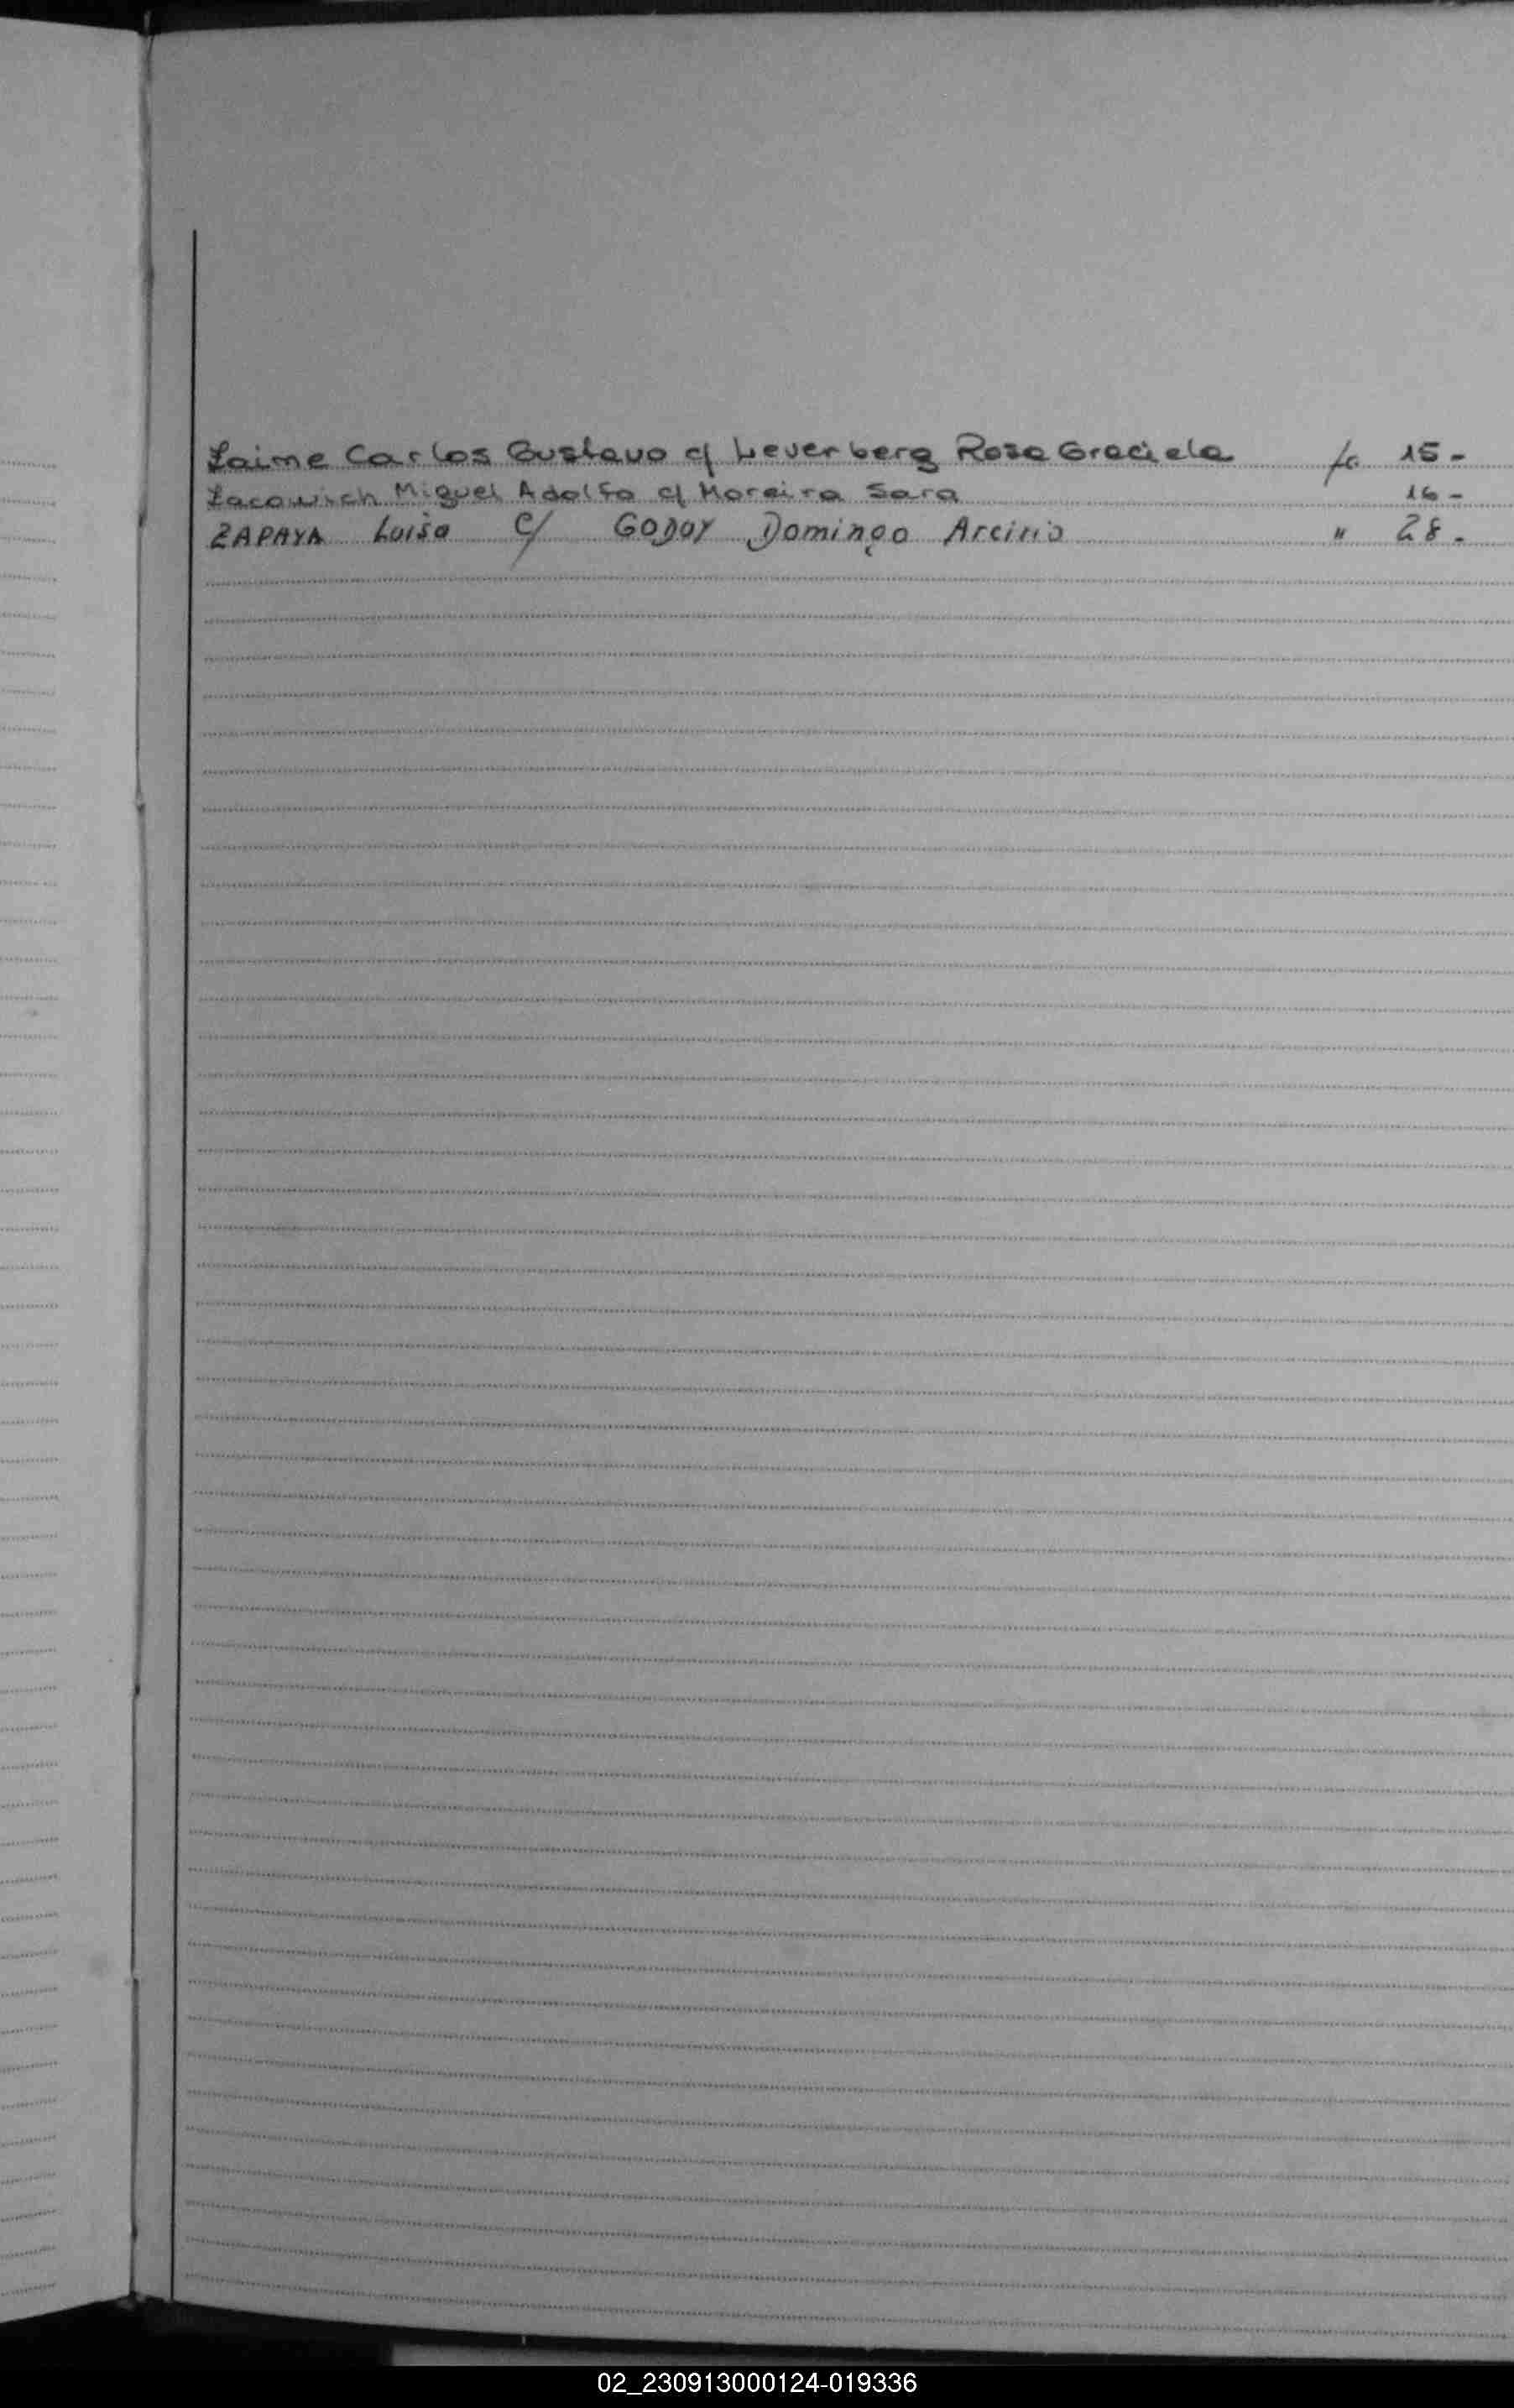 Zaime Carlos Gustavo c/ Leverberg Rosa Graciela fo 15-
Zacowich Miguel Adolfo c/ Moreira Sara 16-
ZAPAYA Luisa c/ GODOY Domingo Arcirio " 28.
02_230913000124-019336